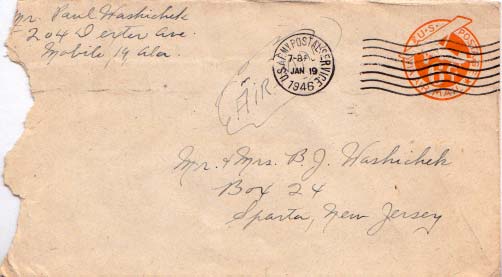 Mr. Paul Washichek
204 Dexter Ave.
Mobile, 19, Ala.
U.S. ARMY POSTAL SERVICE
7-8
JAN 19
1946
AIR
U.S. POSTAGE
AIR MAIL
Mr. & Mrs. B. J. Washichek
Box 24
Sparta, New Jersey